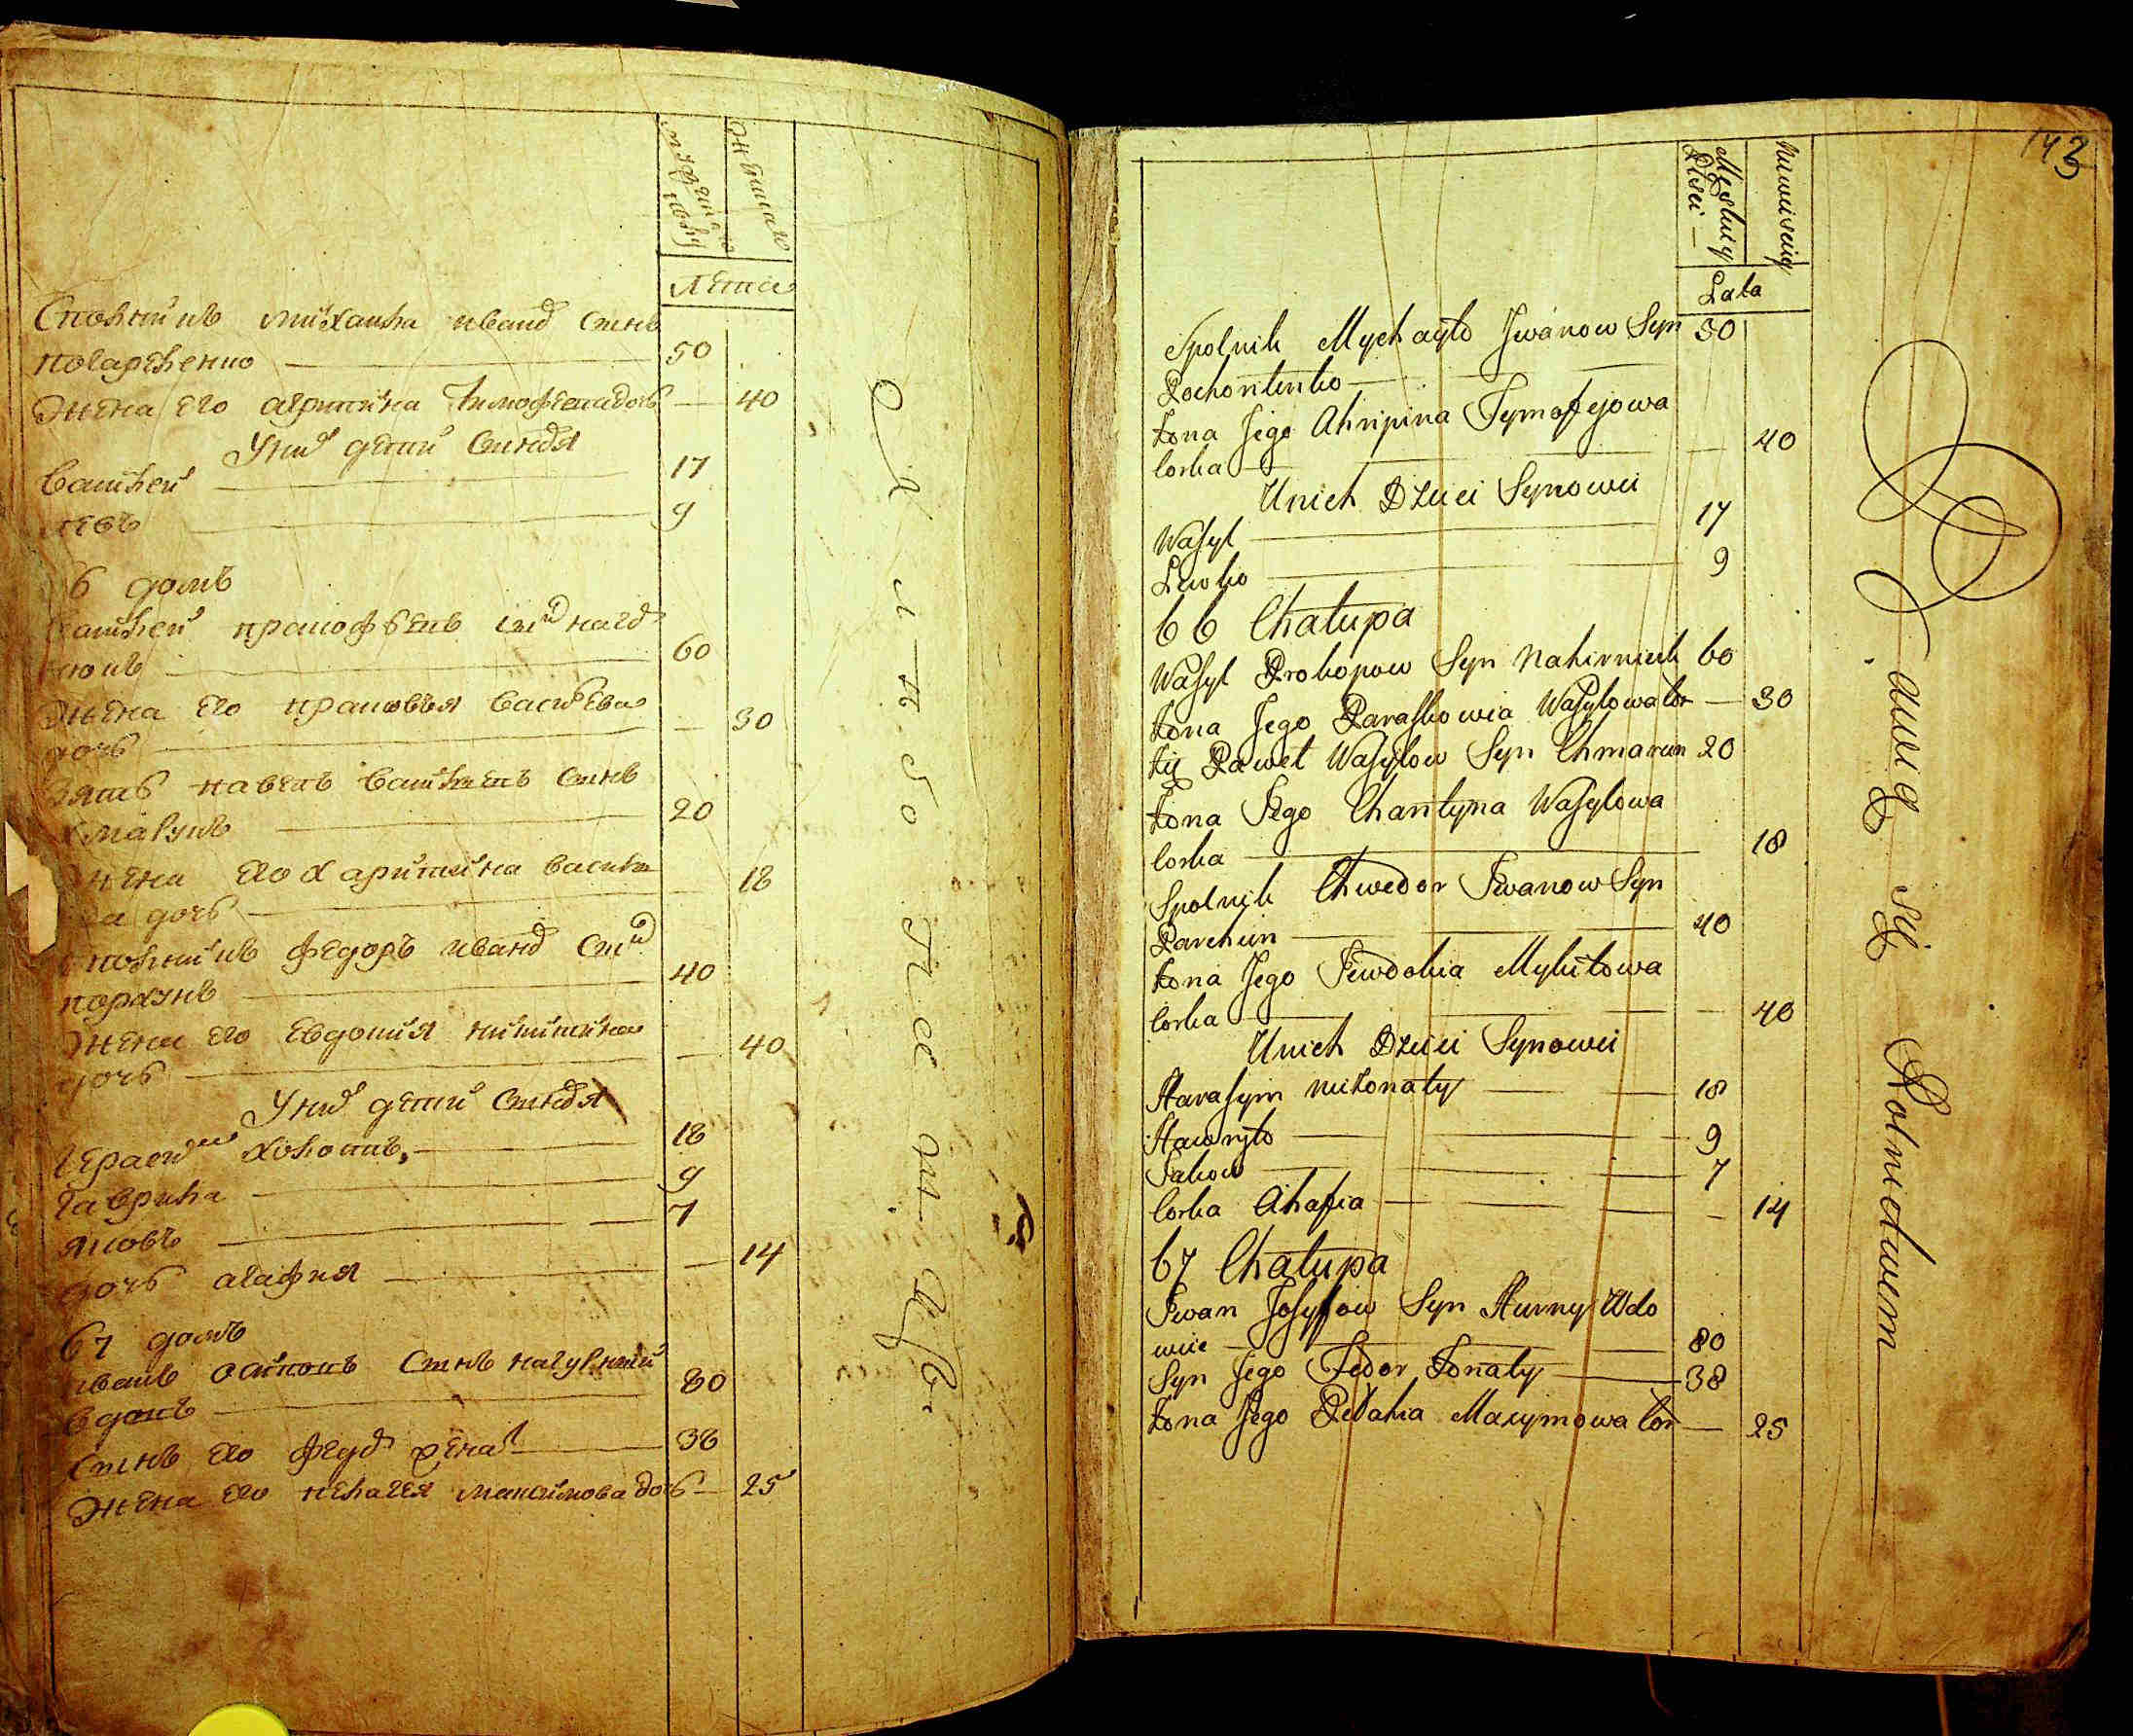 мужеский
женска
лета
Сполникъ михаила иванов синъ
погарѣленко 50
Жена его агрипина тимофеева дочь 40
У них дети синовя
Василей 17
левъ 9
66 домъ
Василей прокофѣевъ син нагор
нюкъ 60
Жена его прасковья василева
дочь 30
Зять павелъ василевъ синъ
хмарунъ 20
Жена его харитина василе
ва дочь 18
Сполникъ федоръ иванов син
порхунъ 40
Жена его евдокия никитина
дочь 40
У них дети синовя
герасим холостъ 18
гаврила 9
яковъ 7
дочь агафия 14
67 домъ
иванъ осиповъ синъ нагурний
вдовъ 80
Синъ его федор женат 38
Жена его пелагея максимова дочь 25
143
Męskiej
Płci
Niewiesciej
Lata
Spolnik Mychayło Jwanow Syn 50
Pochorilenko
Żona Jego Ahripina Tymofejowa
Corka 40
Unich Dzieci Synowei
Wasyl 17
Lewko 9
66 Chałupa
Wasyl Prokopow Syn Nahirniuk 60
Żona Jego Paraskowia Wasylowa Cor 30
Zięć Paweł Wasylow Syn Chmarun 20
Żona Jego Charytyna Wasylowa
Corka 18
Spolnik Chwedor Jwanow Syn
Parchun 40
Żona Jego Jewdokia Mykitowa
Corka 40
Unich Dzieci Synowei
Harasym nieżonaty 18
Hawryło 9
Jakow 7
Corka Ahafia 14
67 Chałupa
Jwan Josypow Syn Hurny Wdo
wiec 80
Syn Jego Fedor Żonaty 38
Żona Jego Pełahia Maxymowa Cor 25
Bawią się Rolnictwem